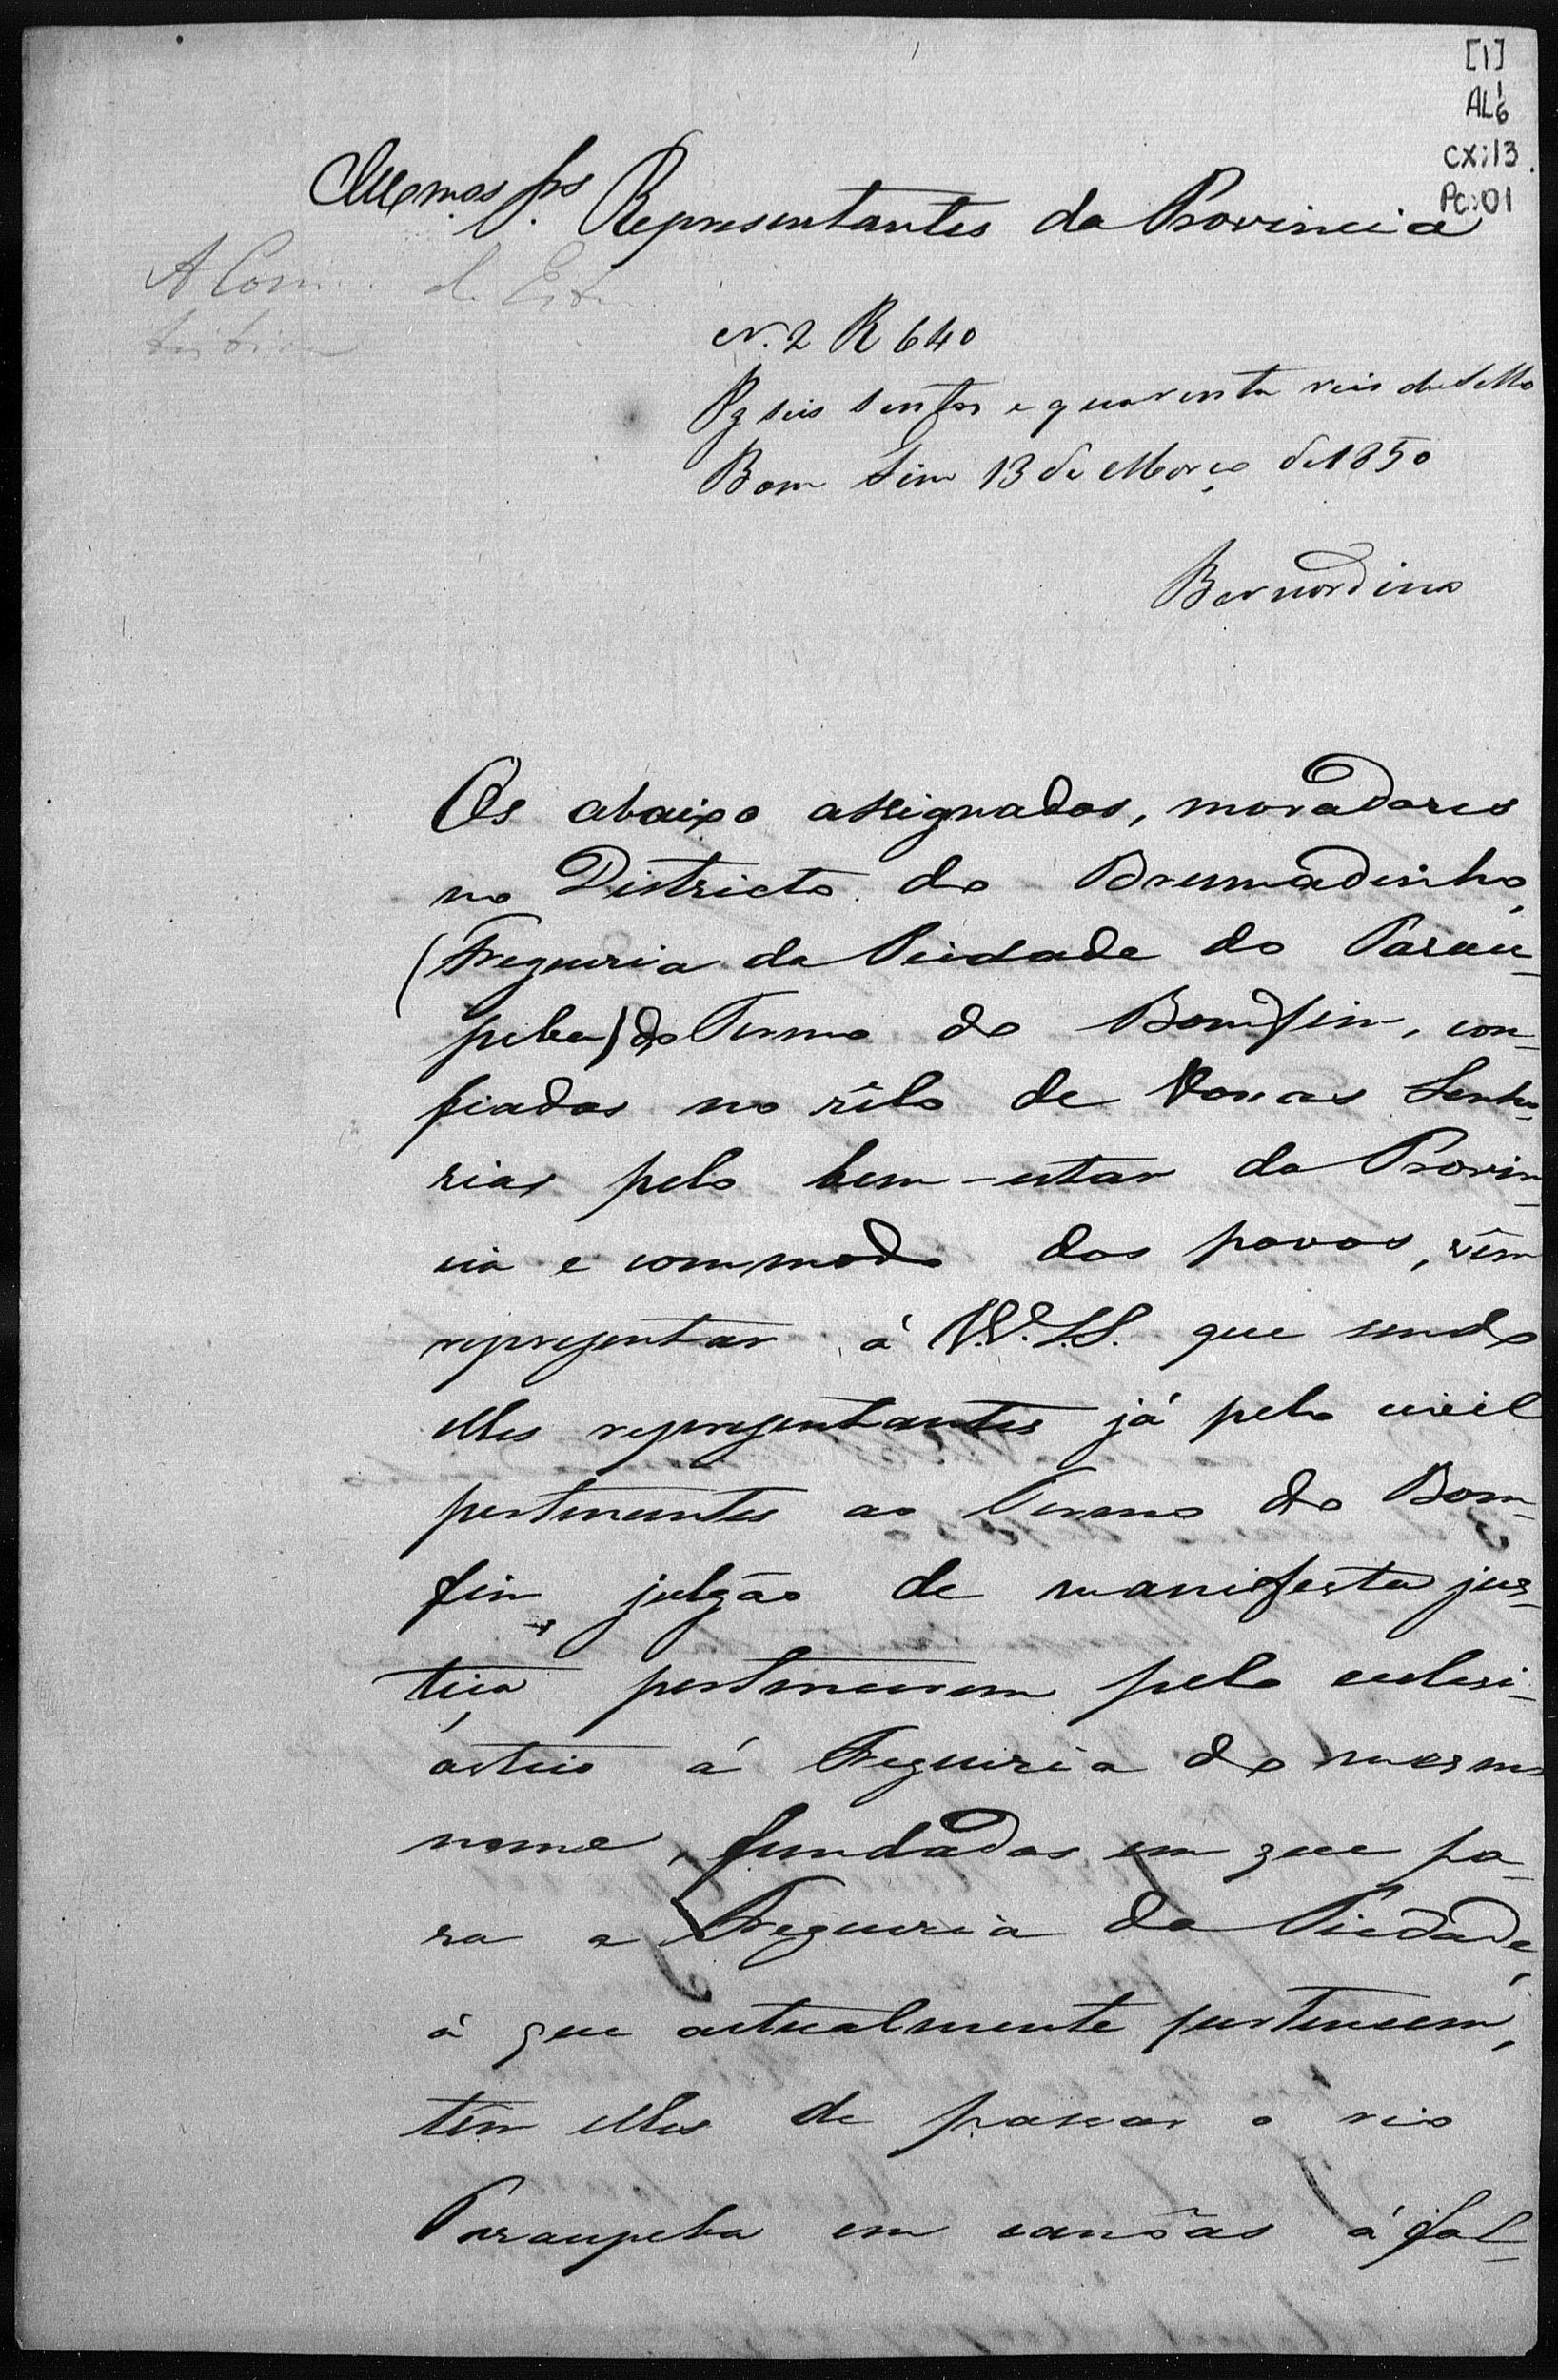 [1]
AL 1/6
cx: 13
Pc: 01
Illmos. Srs. Representantes da Provincia
A Com. de Esta
tistica
N. 2 R 640
Pg seis sentos e quarenta reis de Sello
Bom Fim 13 de Março de 1850
Bernardino
Os abaixo assignados, moradores
no Districto do Brumadinho,
(Freguesia da Piedade do Parau-
peba) do Termo do Bomfim, con-
fiados no zêlo de Vossas Senho-
rias pelo bem-estar da Provin-
cia e commodo dos povos, vêm
representar á V.V. S.S. que sendo
elles representantes já pelo civil
pertencentes ao Termo do Bom-
fim, julgão de manifesta jus-
tiça pertencerem pelo eclesi-
astico á Freguesia do mesmo
nome, fundados em que pa-
ra a Freguesia da Piedade,
á que actualmente pertencem,
têm elles de passar o rio
Paraupeba em canôas á fal-